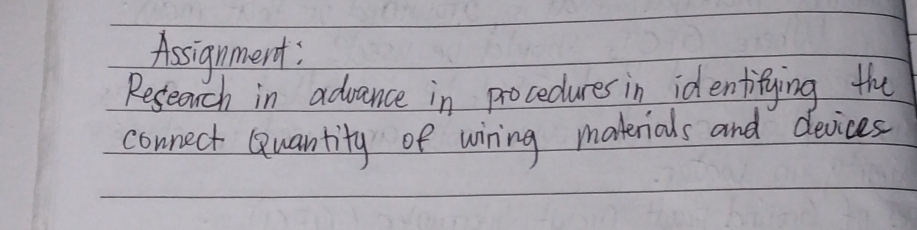 Assignment:
Research in advance in procedures in identifying the
connect Quantity of wiring materials and devices